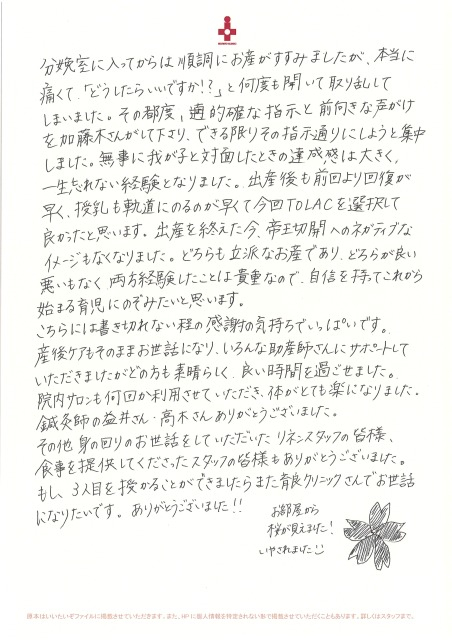 分娩室に入ってからは順調にお産がすすみましたが、本当に
痛くて、「どうしたらいいですか!?」と何度も聞いて取り乱して
しまいました。その都度、適的確な指示と前向きな声がけ
を加藤木さんがして下さり、できる限りその指示通りにしようと集中
しました。無事に我が子と対面したときの達成感は大きく、
一生忘れない経験となりました。出産後も前回より回復が
早く、授乳も軌道にのるのが早くて今回TOLACを選択して
良かったと思います。出産を終えた今、帝王切開へのネガティブな
イメージもなくなりました。どちらも立派なお産であり、どちらが良い
悪いもなく両方経験したことは貴重なので、自信を持ってこれから
始まる育児にのぞみたいと思います。
こちらには書き切れない程の感謝の気持ちでいっぱいです。
産後ケアもそのままお世話になり、いろんな助産師さんにサポートして
いただきましたがどの方も素晴らしく、良い時間を過ごせました。
院内サロンも何回か利用させていただき、体がとても楽になりました。
鍼灸師の益井さん・高木さんありがとうございました。
その他身の回りのお世話をしていただいたリネンスタッフの皆様、
食事を提供してくださったスタッフの皆様もありがとうございました。
もし、3人目を授かることができましたらまた育良クリニックさんでお世話
になりたいです。ありがとうございました!!
お部屋から
桜が見えました!
いやされました
原本はいいたいぞファイルに掲載させていただきます。また、HPに個人情報を特定されない形で掲載させていただくこともあります。詳しくはスタッフまで。